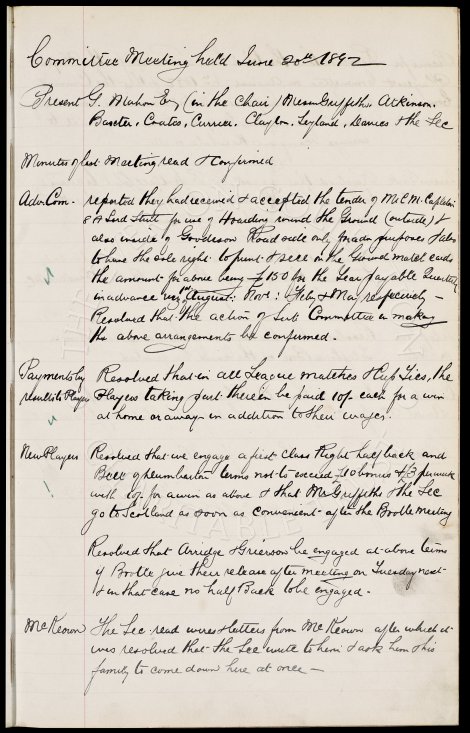 Committee Meeting held June 20th 1892
Present G. Mahon Esq (in the Chair) Messrs Griffiths, Atkinson,
Baxter, Coates, Currier, Clayton, Leyland, Nannies & the Sec
Minutes of last Meeting read & Confirmed
Adv. Com. - reported they had received & accepted the tender of Mr E. M.
8A Lord Street for use of Hoarding round the Ground (outside) &
also inside of Goodison Road side only for adv. purposes & also
to have the sole right to print & sell in the Ground match cards
the amount for above being £150 for the year payable Quarterly
in advance viz 1st August: Nov: Feby & May respecively -
Resolved that the action of Sub Committee in making
the above arrangements be confirmed.
Payments by Resolved that in all League matches & Cup Ties, the
results to Players Players taking part therein be paid 10/- each for a win
at home or away in addition to their wages.
New Players Resolved that we engage a first class Right half back and
Bell of Dumbarton terms not to exceed £10 bonus & £3 per week
with 10/- for a win as above & that Mr Griffiths & the Sec
go to Scotland as soon as convenient after the Bootle Meeting
Resolved that Arridge & Grierson be engaged at above terms
if Bootle give their release after meeting on Tuesday next
& in that case no half Back to be engaged.
McKeown The Sec. read wires & letters from McKeown after which it
was resolved that the Sec write to him & ask him & his
family to come down here at once -